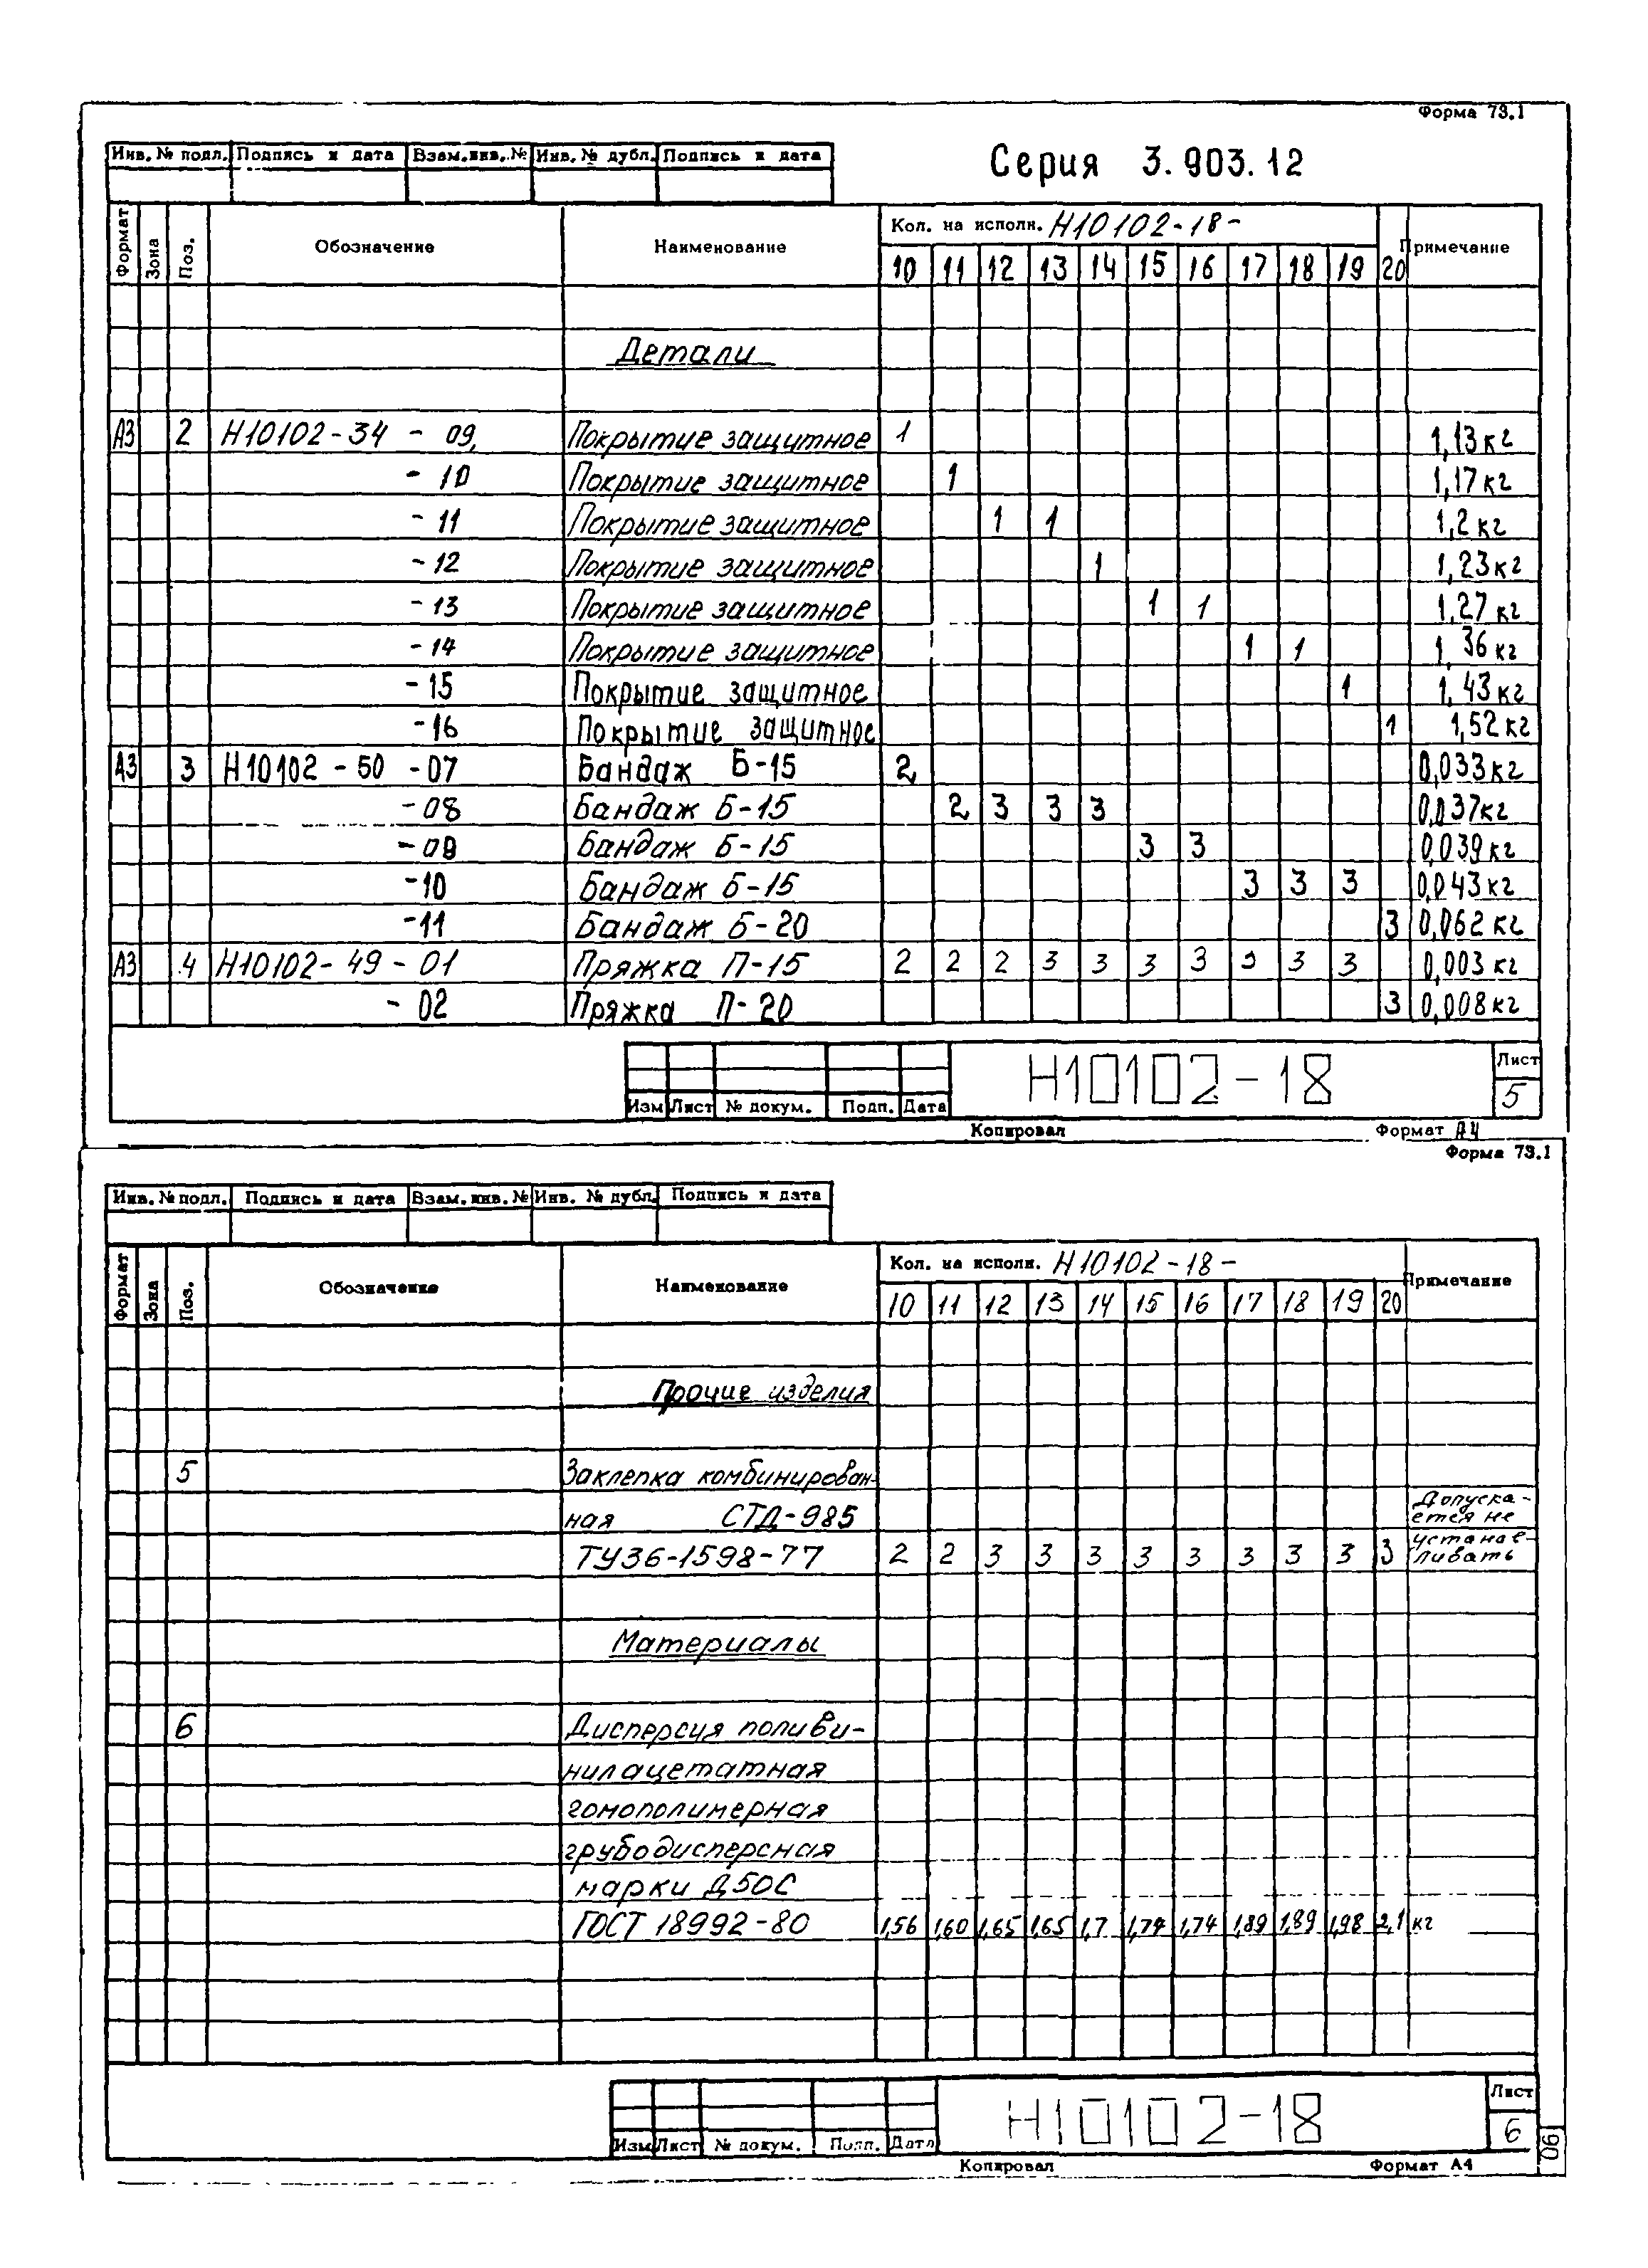 Форма 73.1
Инв. № подл. Подпись и дата Взам.инв.№ Инв. № дубл. Подпись и дата
Серия 3.903.12
Формат Зона Поз. Обозначение Наименование Кол. на исполн. Н10102-18- Примечание
10 11 12 13 14 15 16 17 18 19 20
Детали
А3 2 Н10102-34 - 09, Покрытие защитное 1 1,13кг
- 10 Покрытие защитное 1 1,17кг
- 11 Покрытие защитное 1 1 1,2 кг
- 12 Покрытие защитное 1 1,23кг
- 13 Покрытие защитное 1 1 1,27 кг
- 14 Покрытие защитное 1 1 1,36 кг
- 15 Покрытие защитное 1 1,43 кг
- 16 Покрытие защитное 1 1,52кг
А3 3 Н10102 - 50 - 07 Бандаж Б-15 2 0,033кг
- 08 Бандаж Б-15 2 3 3 3 0,037кг
- 09 Бандаж Б-15 3 3 0,039кг
- 10 Бандаж Б-15 3 3 3 0,043кг
- 11 Бандаж Б-20 3 0,062кг
А3 4 Н10102-49-01 Пряжка П-15 2 2 2 3 3 3 3 3 3 3 0,003 кг
- 02 Пряжка П-20 3 0,008кг
Изм Лист № докум. Подп. Дата
Н10102-18
Лист
5
Копировал Формат А4
Форма 73.1
Инв. № подл. Подпись и дата Взам. инв. № Инв. № дубл. Подпись и дата
Формат Зона Поз. Обозначение Наименование Кол. на исполн. Н10102-18- Примечание
10 11 12 13 14 15 16 17 18 19 20
Прочие изделия
5 Заклепка комбинирован-
ная СТД-985 Допуска-
ется не
ТУ36-1598-77 2 2 3 3 3 3 3 3 3 3 3 устанав-
ливать
Материалы
6 Дисперсия поливи-
нилацетатная
гомополимерная
грубодисперсная
марки Д50С
ГОСТ 18992-80 1,56 1,60 1,65 1,65 1,7 1,74 1,74 1,89 1,89 1,98 2,1 кг
Изм Лист № докум. Подп. Дата
Н10102-18
Лист
6
Копировал Формат А4